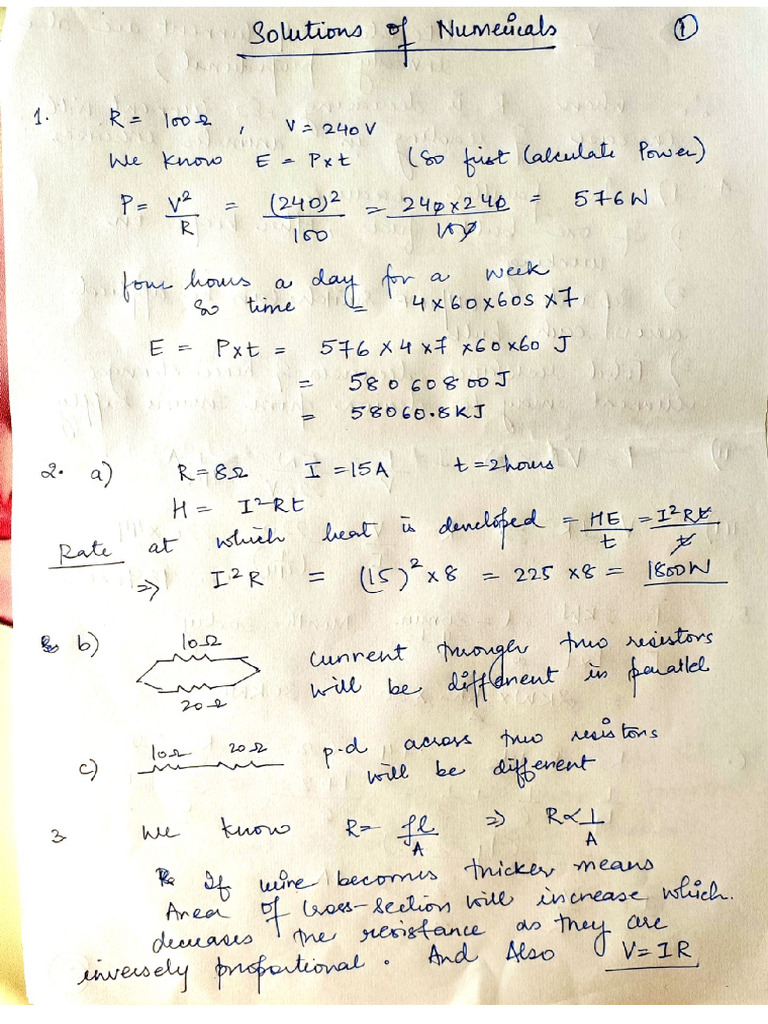 Solutions of Numericals ①
1. R = 100Ω , V = 240V
We know E = P×t (So first Calculate Power)
P = V²/R = (240)²/100 = 240×240/100 = 576W
four hours a day for a week
So time = 4×60×60s×7
E = P×t = 576×4×7×60×60 J
= 58060800J
= 58060.8KJ
2. a) R=8Ω I=15A t=2hours
H = I²Rt
Rate at which heat is developed = HE/t = I²Rt/t
⇒ I²R = (15)²×8 = 225×8 = 1800W
b) 10Ω 20Ω current through two resistors
will be different in parallel
c) 10Ω 20Ω p.d across two resistors
will be different
3 We know R = ρl/A ⇒ R∝1/A
If wire becomes thicker means
Area of Cross-section will increase which
decreases the resistance as they are
inversely proportional. And Also V=IR